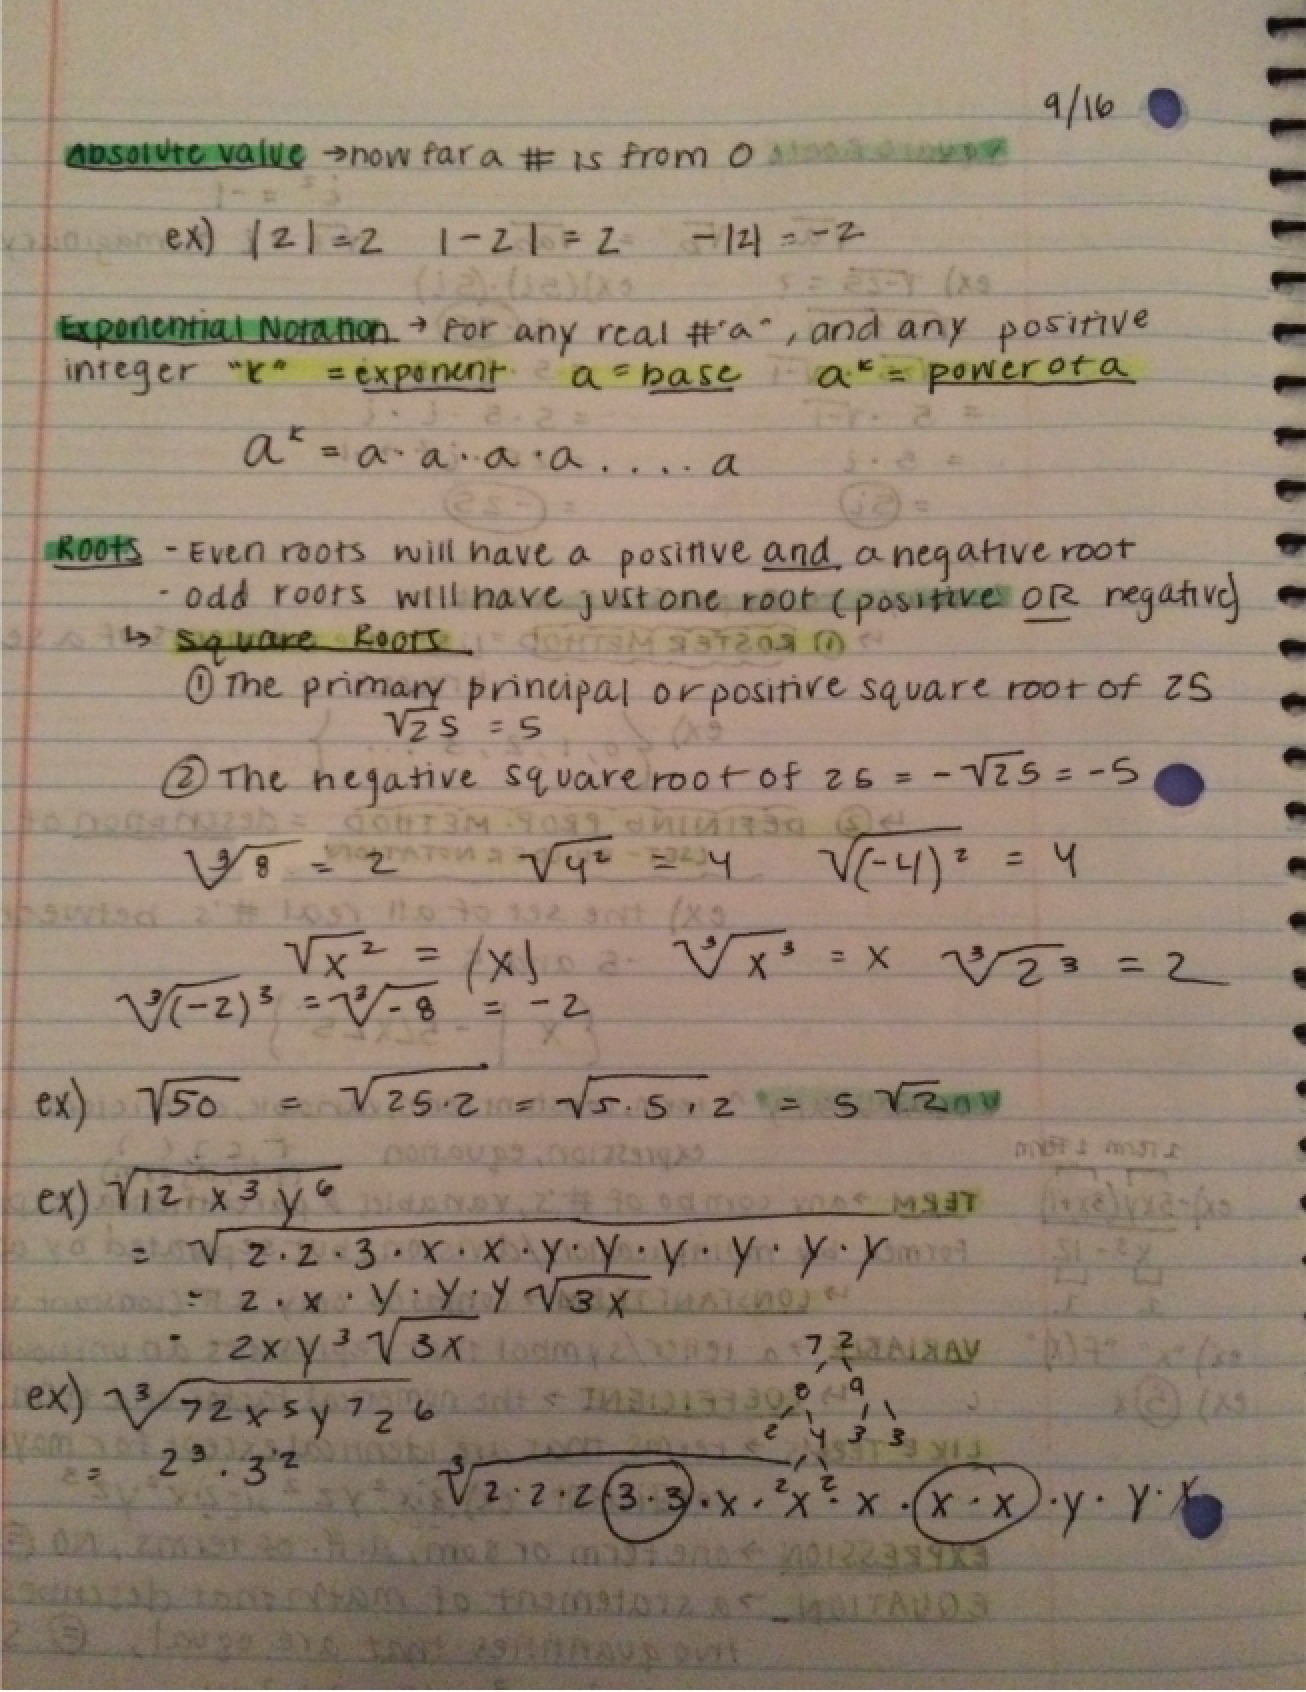 9/16
Absolute value → how far a # is from 0
ex) |2| = 2 |-2| = 2 -|2| = -2
Exponential Notation → for any real # "a", and any positive
integer "k" = exponent a = base aᵏ = power of a
aᵏ = a · a · a · a . . . . . a
Roots - Even roots will have a positive and a negative root
- odd roots will have just one root (positive OR negative)
↳ Square Roots
① The primary principal or positive square root of 25
√25 = 5
② The negative square root of 25 = -√25 = -5
∛8 = 2 √4² = 4 √(-4)² = 4
√x² = |x| ∛x³ = x ∛2³ = 2
∛(-2)³ = ∛-8 = -2
ex) √50 = √25·2 = √5·5·2 = 5√2
ex) √12x³y⁶
= √2·2·3·x·x·y·y·y·y·y·y
= 2·x·y·y·y√3x
= 2xy³√3x
72
ex) ∛72x⁵y⁷z⁶ 8 9
2 4 3 3
= 2³·3² 2 2
∛2·2·2·3·3·x·x·x·x·x·y·y·